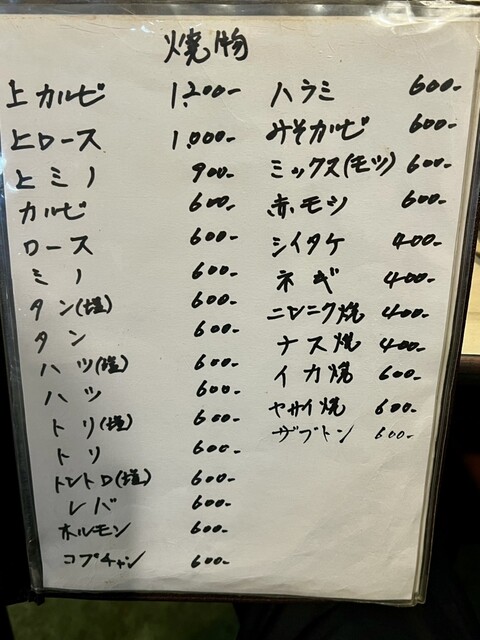 焼物
上カルビ 1,200-
上ロース 1,000-
上ミノ 900-
カルビ 600-
ロース 600-
ミノ 600-
タン(塩) 600-
タン 600-
ハツ(塩) 600-
ハツ 600-
トリ(塩) 600-
トリ 600-
トントロ(塩) 600-
レバ 600-
ホルモン 600-
コプチャン 600-
ハラミ 600-
みそカルビ 600-
ミックス(モツ) 600-
赤モシ 600-
シイタケ 400-
ネギ 400-
ニンニク焼 400-
ナス焼 400-
イカ焼 600-
ヤサイ焼 600-
ザブトン 600-